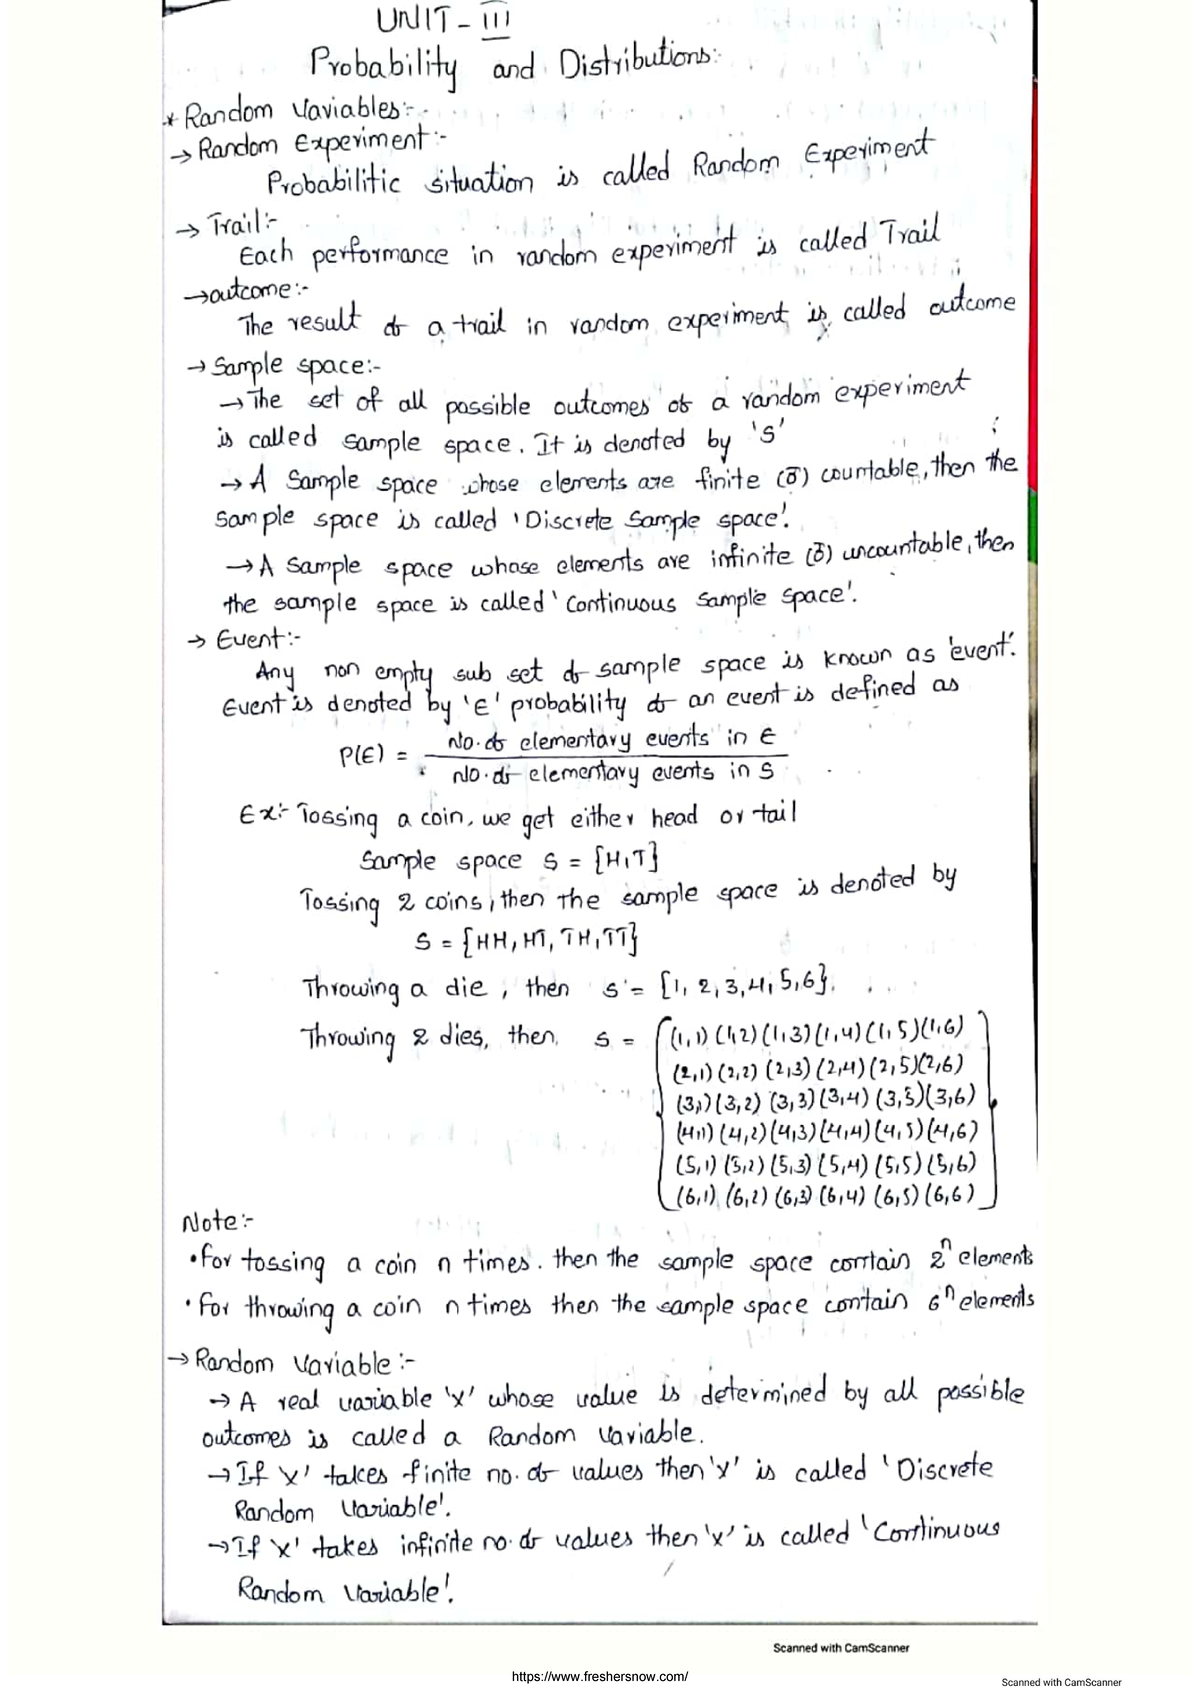 UNIT - III
Probability and Distributions:-
* Random Variables:-
→ Random Experiment:-
Probabilitic situation is called Random Experiment
→ Trail:-
Each performance in random experiment is called Trail
→ outcome:-
The result of a trail in random experiment is called outcome
→ Sample space:-
→ The set of all possible outcomes of a random experiment
is called sample space. It is denoted by 'S'
→ A Sample space whose elements are finite (or) countable, then the
sample space is called 'Discrete Sample space'.
→ A Sample space whose elements are infinite (or) uncountable, then
the sample space is called 'Continuous Sample Space'.
→ Event:-
Any non empty sub set of sample space is known as 'event'.
Event is denoted by 'E' probability of an event is defined as
P(E) = No. of elementary events in E / No. of elementary events in S
Ex:- Tossing a coin, we get either head or tail
Sample space S = {H,T}
Tossing 2 coins, then the sample space is denoted by
S = {HH, HT, TH, TT}
Throwing a die, then S = {1, 2, 3, 4, 5, 6}.
Throwing 2 dies, then, S = {(1,1) (1,2) (1,3) (1,4) (1,5) (1,6)
(2,1) (2,2) (2,3) (2,4) (2,5) (2,6)
(3,1) (3,2) (3,3) (3,4) (3,5) (3,6)
(4,1) (4,2) (4,3) (4,4) (4,5) (4,6)
(5,1) (5,2) (5,3) (5,4) (5,5) (5,6)
(6,1) (6,2) (6,3) (6,4) (6,5) (6,6)}
Note:-
• For tossing a coin n times. then the sample space contain 2^n elements
• For throwing a coin n times then the sample space contain 6^n elements
→ Random Variable:-
→ A real variable 'X' whose value is determined by all possible
outcomes is called a Random Variable.
→ If 'X' takes finite no. of values then 'X' is called 'Discrete
Random Variable'.
→ If 'X' takes infinite no. of values then 'X' is called 'Continuous
Random Variable'.
Scanned with CamScanner
https://www.freshersnow.com/
Scanned with CamScanner